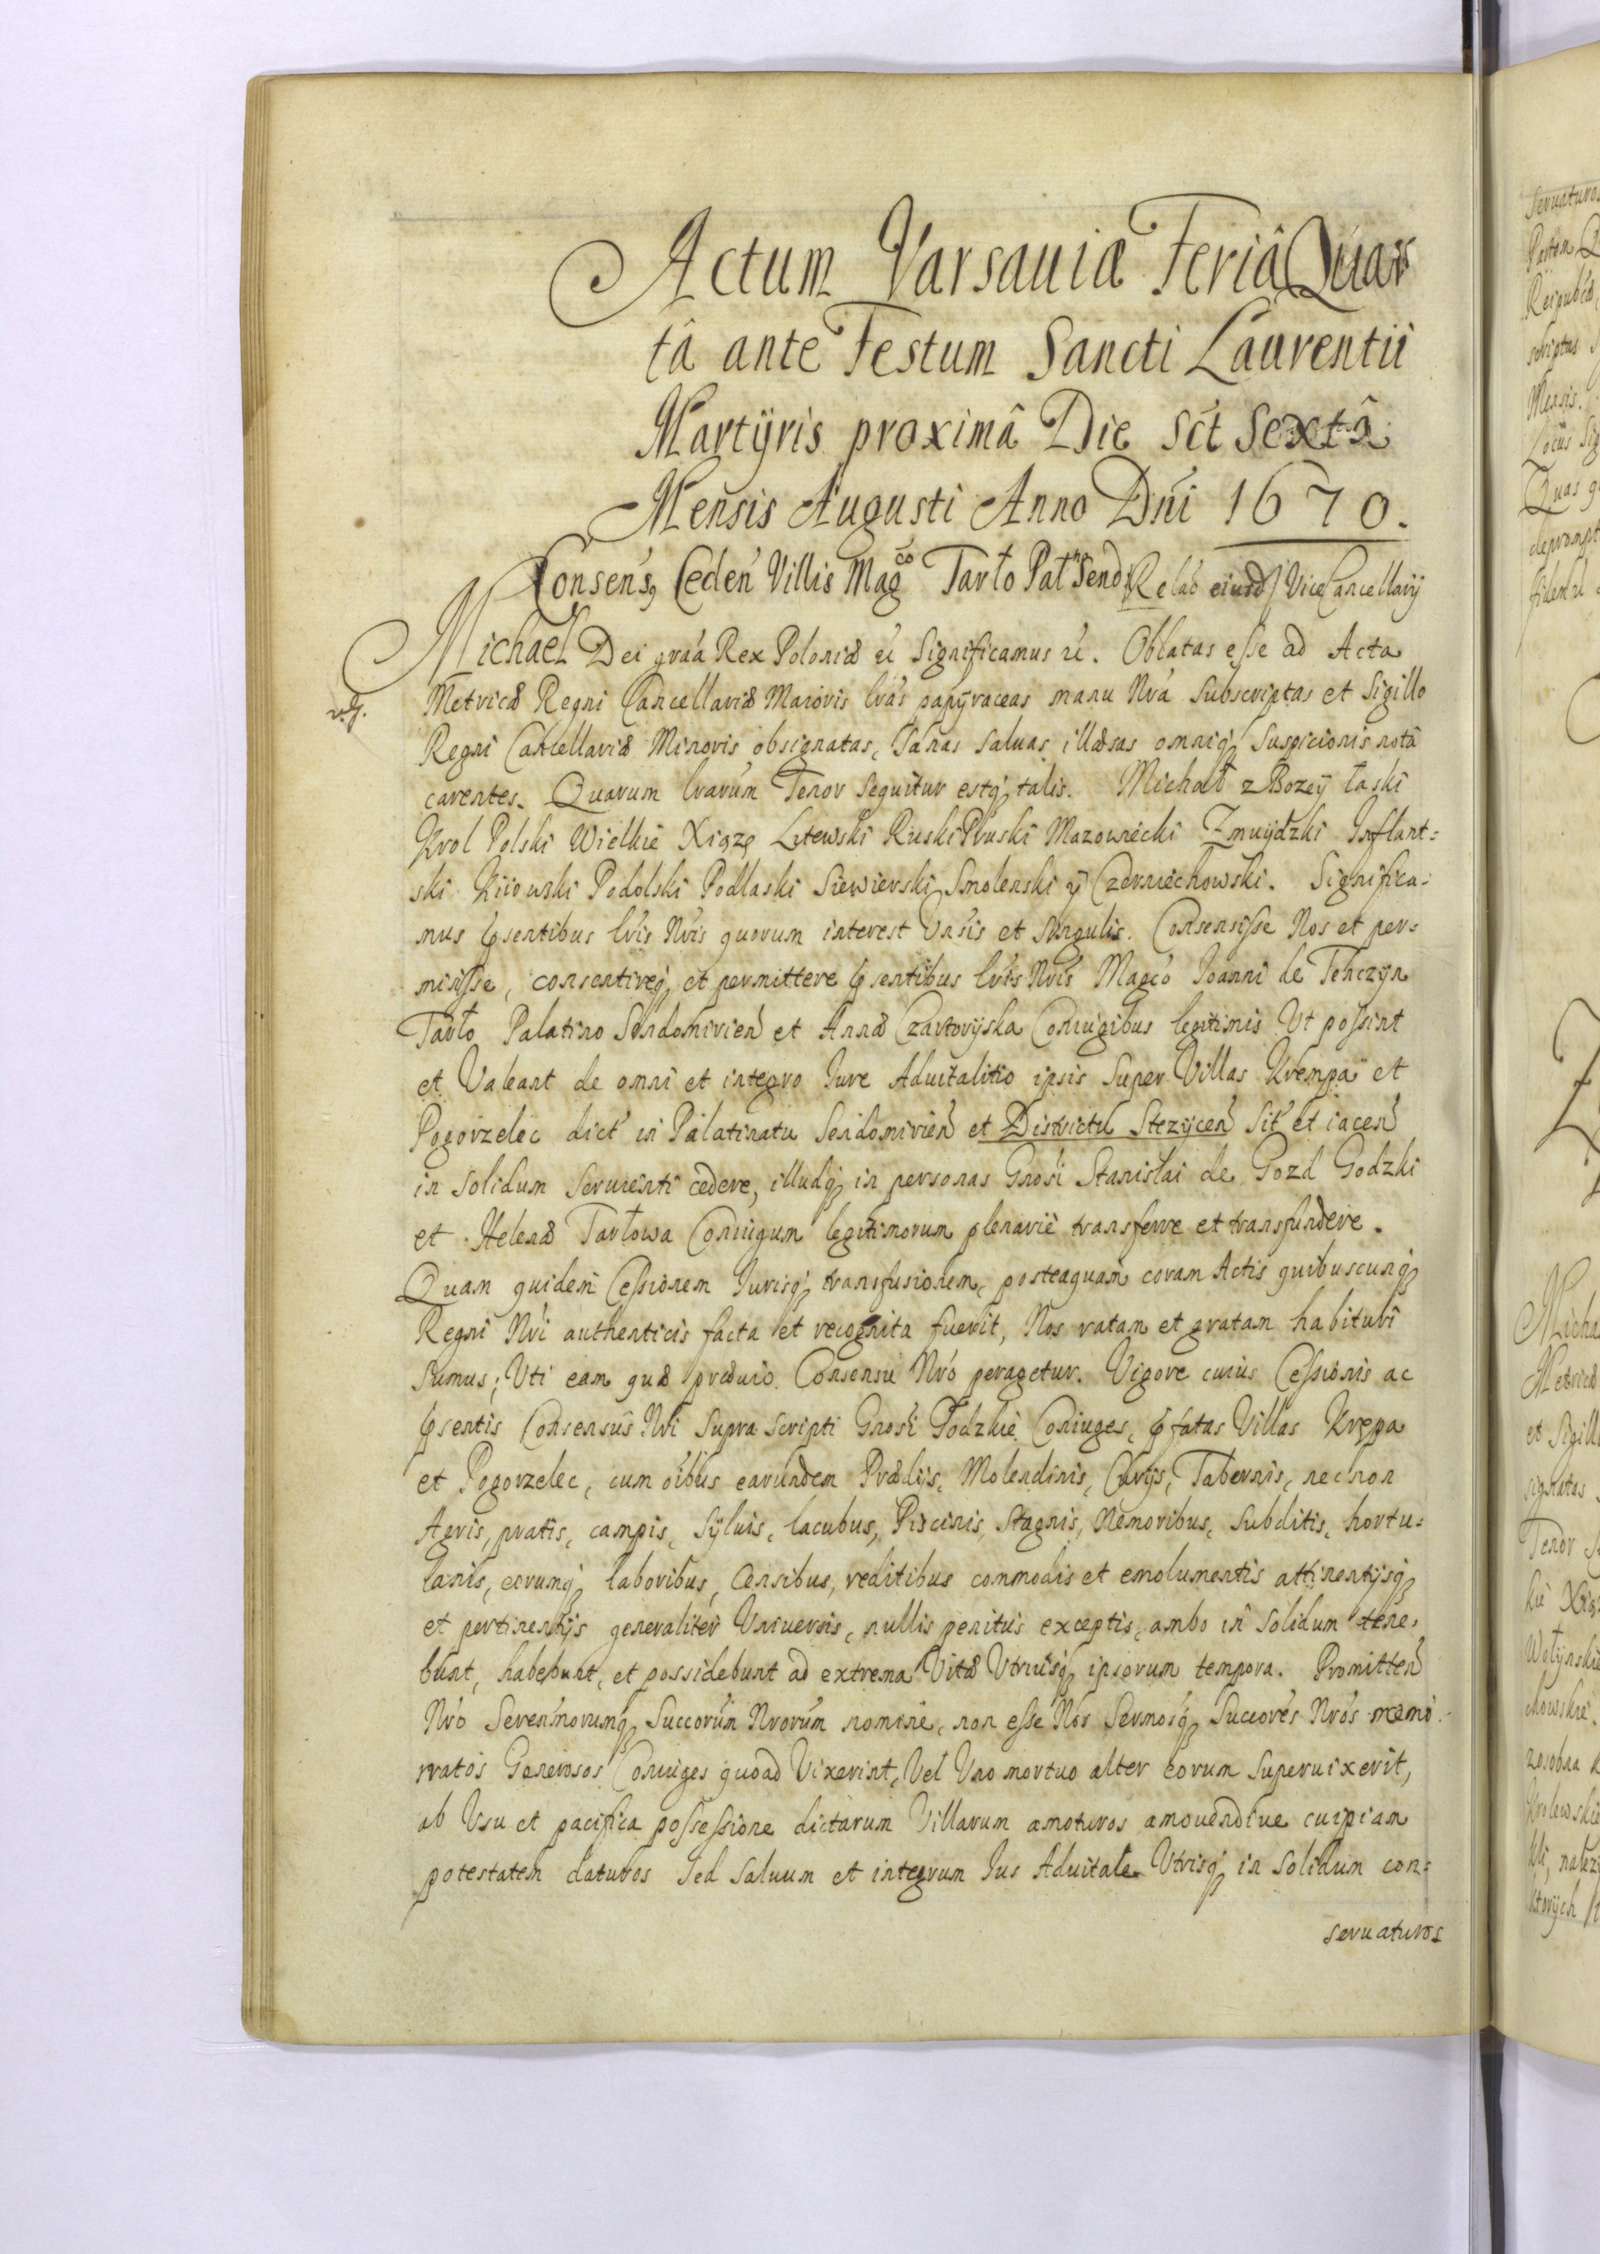 Actum Varsauiæ Feriâ Quar
tâ ante Festum Sancti Laurentii
Martÿris proximâ Die sct̃ Sextâ
Mensis Augusti Anno Dñi 1670.
Consens9 Cedeñ Villis Magco Tarło Patno Send: Relaõ eiusd Vice Cancellarÿ
Michael Dei gr̃aa Rex Poloniæ &c̃ Significamus &c̃. Oblatas esse ad Acta
Metricæ Regni Cancellariæ Maioris lr̃as papÿraceas manu Nr̃a subscriptas et Sigillo
Regni Cancellariæ Minoris obsignatas, Sanas saluas illæsas omniq3 suspicionis notâ
carentes. Quarum lrarum Tenor sequitur estq3 talis. Michał z Bozeÿ łaski
Krol Polski Wielkie Xiązę Litewski Ruski Pruski Mazowiecki Zmuÿdzki Inflant=
ski Kiiowski Podolski Podlaski Siewierski Smolenski ÿ Czerniechowski. Significa=
mus p̃sentibus lr̃is Nr̃is quorum interest Vñsis et singulis. Consensisse Nos et per=
misisse, consentireq3 et permittere p̃sentibus lr̃is Nr̃is Magco Joanni de Tenczÿn
Tarło Palatino Sendomirieñ et Annæ Czartorÿska Coniugibus legitimis Vt possint
et Valeant de omni et integro Iure Aduitalitio ipsis super Villas Krempa et
Pogorzelec dict̃ in Palatinatu Sendomirieñ et Districtu Stezÿceñ sit̃ et iaceñ
in solidum seruienti cedere, illudq3 in personas Gnosi Stanislai de Gozd Godzki
et Helenæ Tarłowa Coniugum legitimorum plenariè transferre et transfundere.
Quam quidem Cessionem Iurisq3 transfusionem, posteaquam coram Actis quibuscunq3
Regni Nr̃i authenticis facta et recognita fuerit, Nos ratam et gratam habituri
sumus; Vti eam quæ præuio Consensu Nr̃o peragetur. Vigore cuius Cessionis ac
p̃sentis Consensûs Nr̃i supra scripti Gnosi Godzkie Coniuges, p̃fatas Villas Krępa
et Pogorzelec, cum oĩbus earundem Prædijs, Molendinis, Curijs, Tabernis, necnon
Agris, pratis, campis, sÿluis, lacubus, Piscinis, stagnis, Nemoribus, subditis, hortu=
lanis, eorumq3 laboribus, Censibus, reditibus commodis et emolumentis attinentijsq3
et pertinentijs generaliter Vniuersis, nullis penitus exceptis, ambo in solidum tene=
bunt, habebunt, et possidebunt ad extrema Vitæ Vtriusq3 ipsorum tempora. Promitteñ
Nr̃o Seren̈morumq3 Succorum Nrorum nomine, non esse Nos Sermosq3 Succores Nr̃os memo=
ratos Generosos Coniuges quoad Vixerint, Vel Vno mortuo alter eorum superuixerit,
ab Vsu et pacifica possessione dictarum Villarum amoturos amouendiue cuipiam
potestatem daturos sed saluum et integrum Ius Aduitale Vtrisq3 in solidum con=
seruaturos